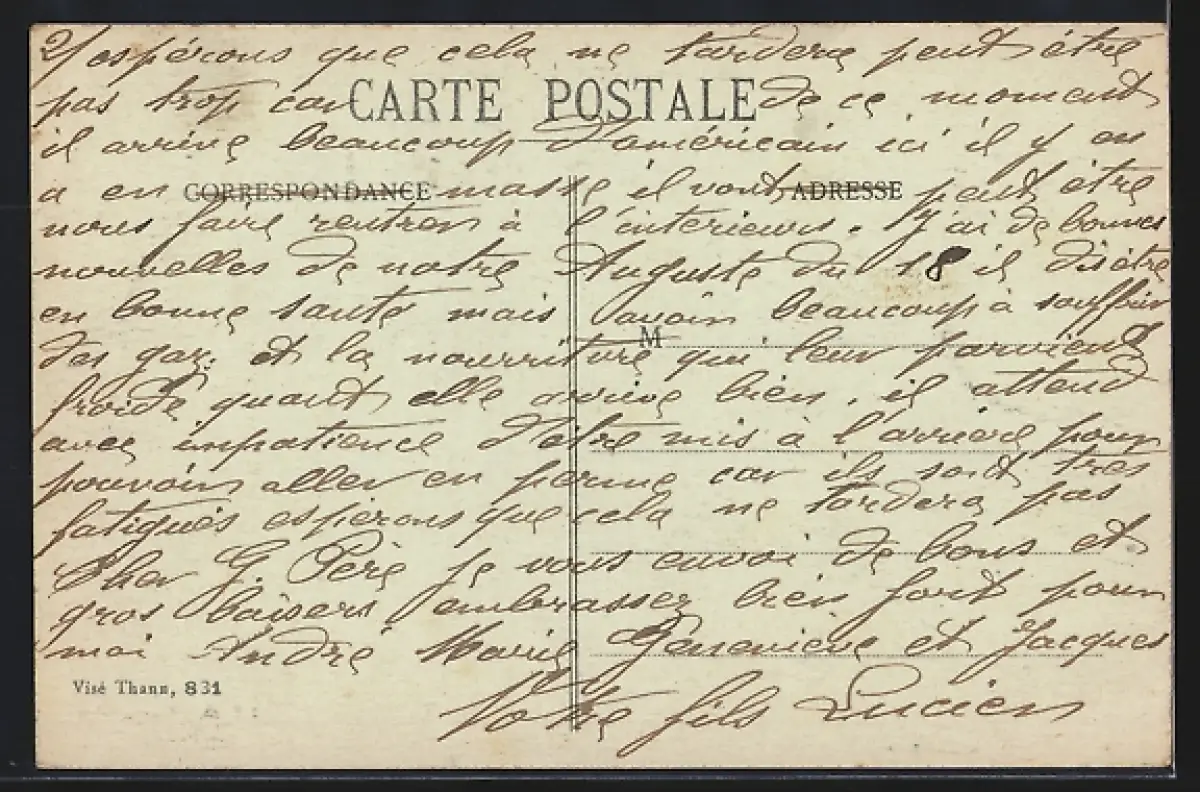 2/ espérons que cela ne tardera peut être
pas trop car de ce moment
CARTE POSTALE
il arrive beaucoup d'américain ici il y en
a en masse il vont peut être
CORRESPONDANCE
ADRESSE
nous faire rentrer à l'intérieurs. J'ai de bonnes
nouvelles de notre Auguste du 18 il dis être
en bonne santé mais avoir beaucoup à souffrir
M
des gaz. et la nourriture qui leur parvient
froide quant elle arrive bien, il attend
avec impatience d'être mis à l'arrière pour
pouvoir aller en perme car ils sont très
fatigués espérons que cela ne tardera pas
Cher G. Père je vous envoi de bons et
gros baisers embrassez bien fort pour
moi André Marie Geneviève et Jacques
Visé Thann, 831
Votre fils Lucien